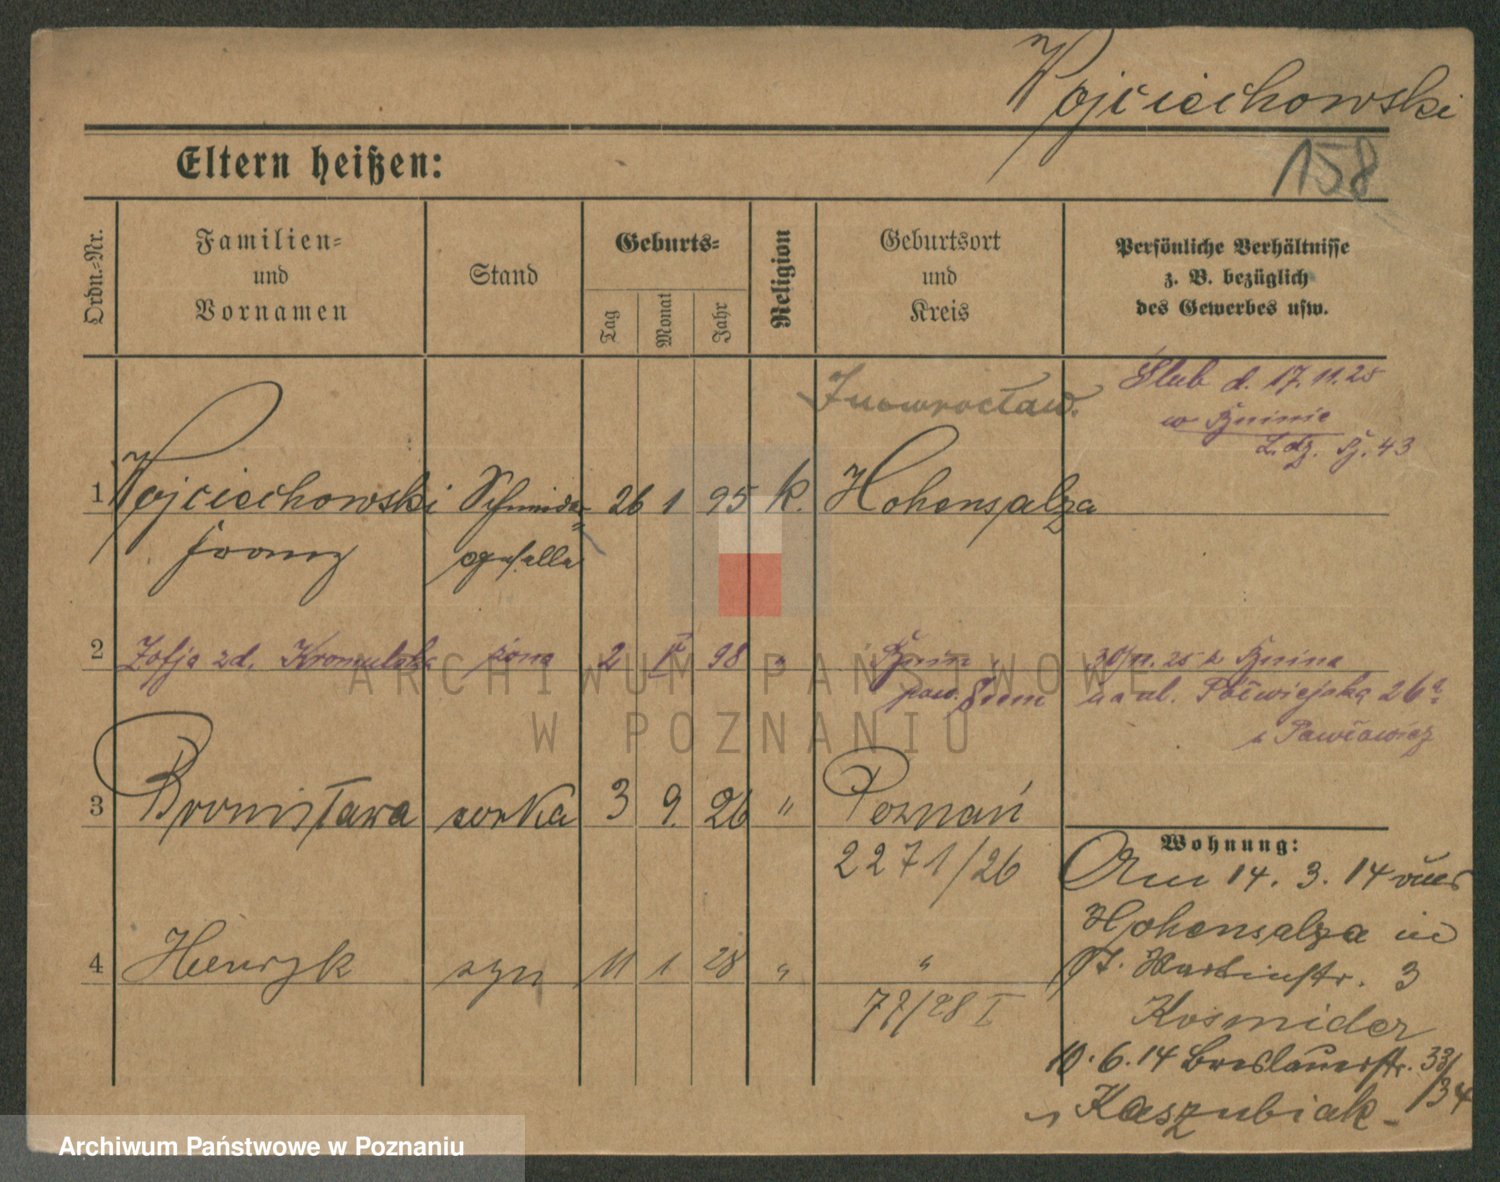 Wojciechowski
158
Eltern heißen:
Ordn.-Nr.
Familien-
und
Vornamen
Stand
Geburts-
Tag
Monat
Jahr
Religion
Geburtsort
und
Kreis
Persönliche Verhältnisse
z. B. bezüglich
des Gewerbes usw.
Inowrocław.
Ślub d. 17.11.25
w Kurnie
L.dz. 43
1 Wojciechowski Schmiede- 26 1 95 k. Hohensalza
Franz geselle
2 Zofja zd. żona 2 V 98 " Kurnin
pow. Śrem
30/11.25 z Kurnina
na ul. Półwiejską 26a
3 Bronisława corka 3 9. 26 " Poznań
2271/26
Wohnung:
Am 14. 3. 14 von
Hohensalza in
St. Martinstr. 3
Kosmider
10.6.14 Breslauerstr. 33/34
Kaszubiak
4 Henryk syn 11 1 28 " "
77/28 I
ARCHIWUM PAŃSTWOWE
W POZNANIU
Archiwum Państwowe w Poznaniu